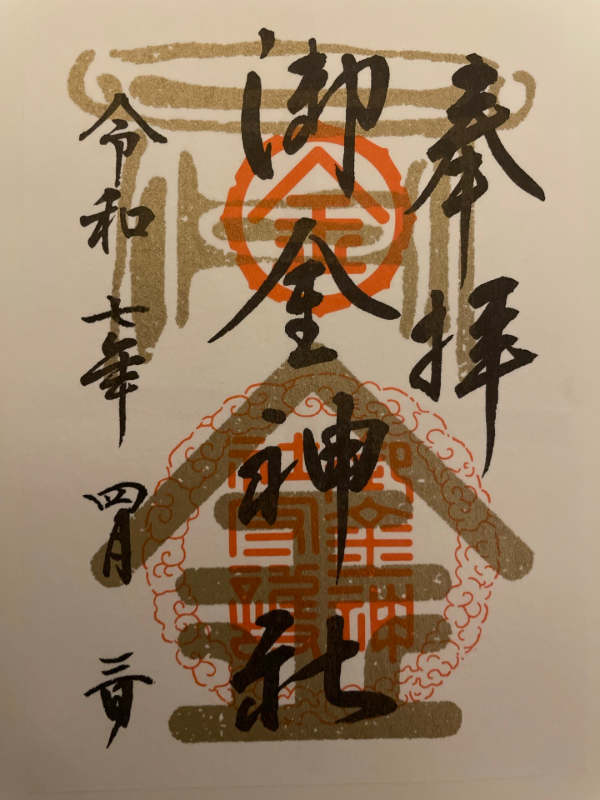 奉拝
御金神社
令和七年四月三日
金
御金神